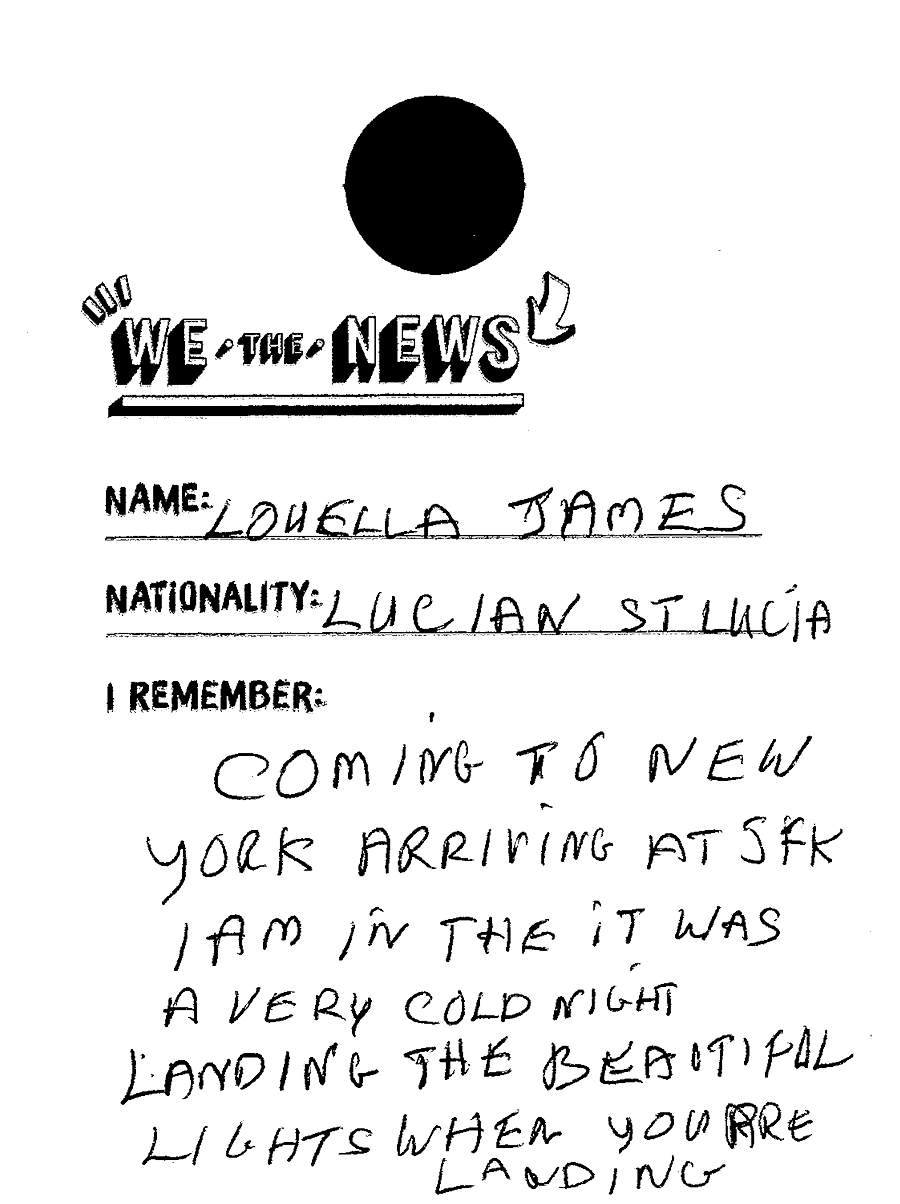 WE THE NEWS
NAME: LOUELLA JAMES
NATIONALITY: LUCIAN ST LUCIA
I REMEMBER:
COMING TO NEW
YORK ARRIVING AT JFK
I AM IN THE IT WAS
A VERY COLD NIGHT
LANDING THE BEAUTIFUL
LIGHTS WHEN YOU ARE
LANDING